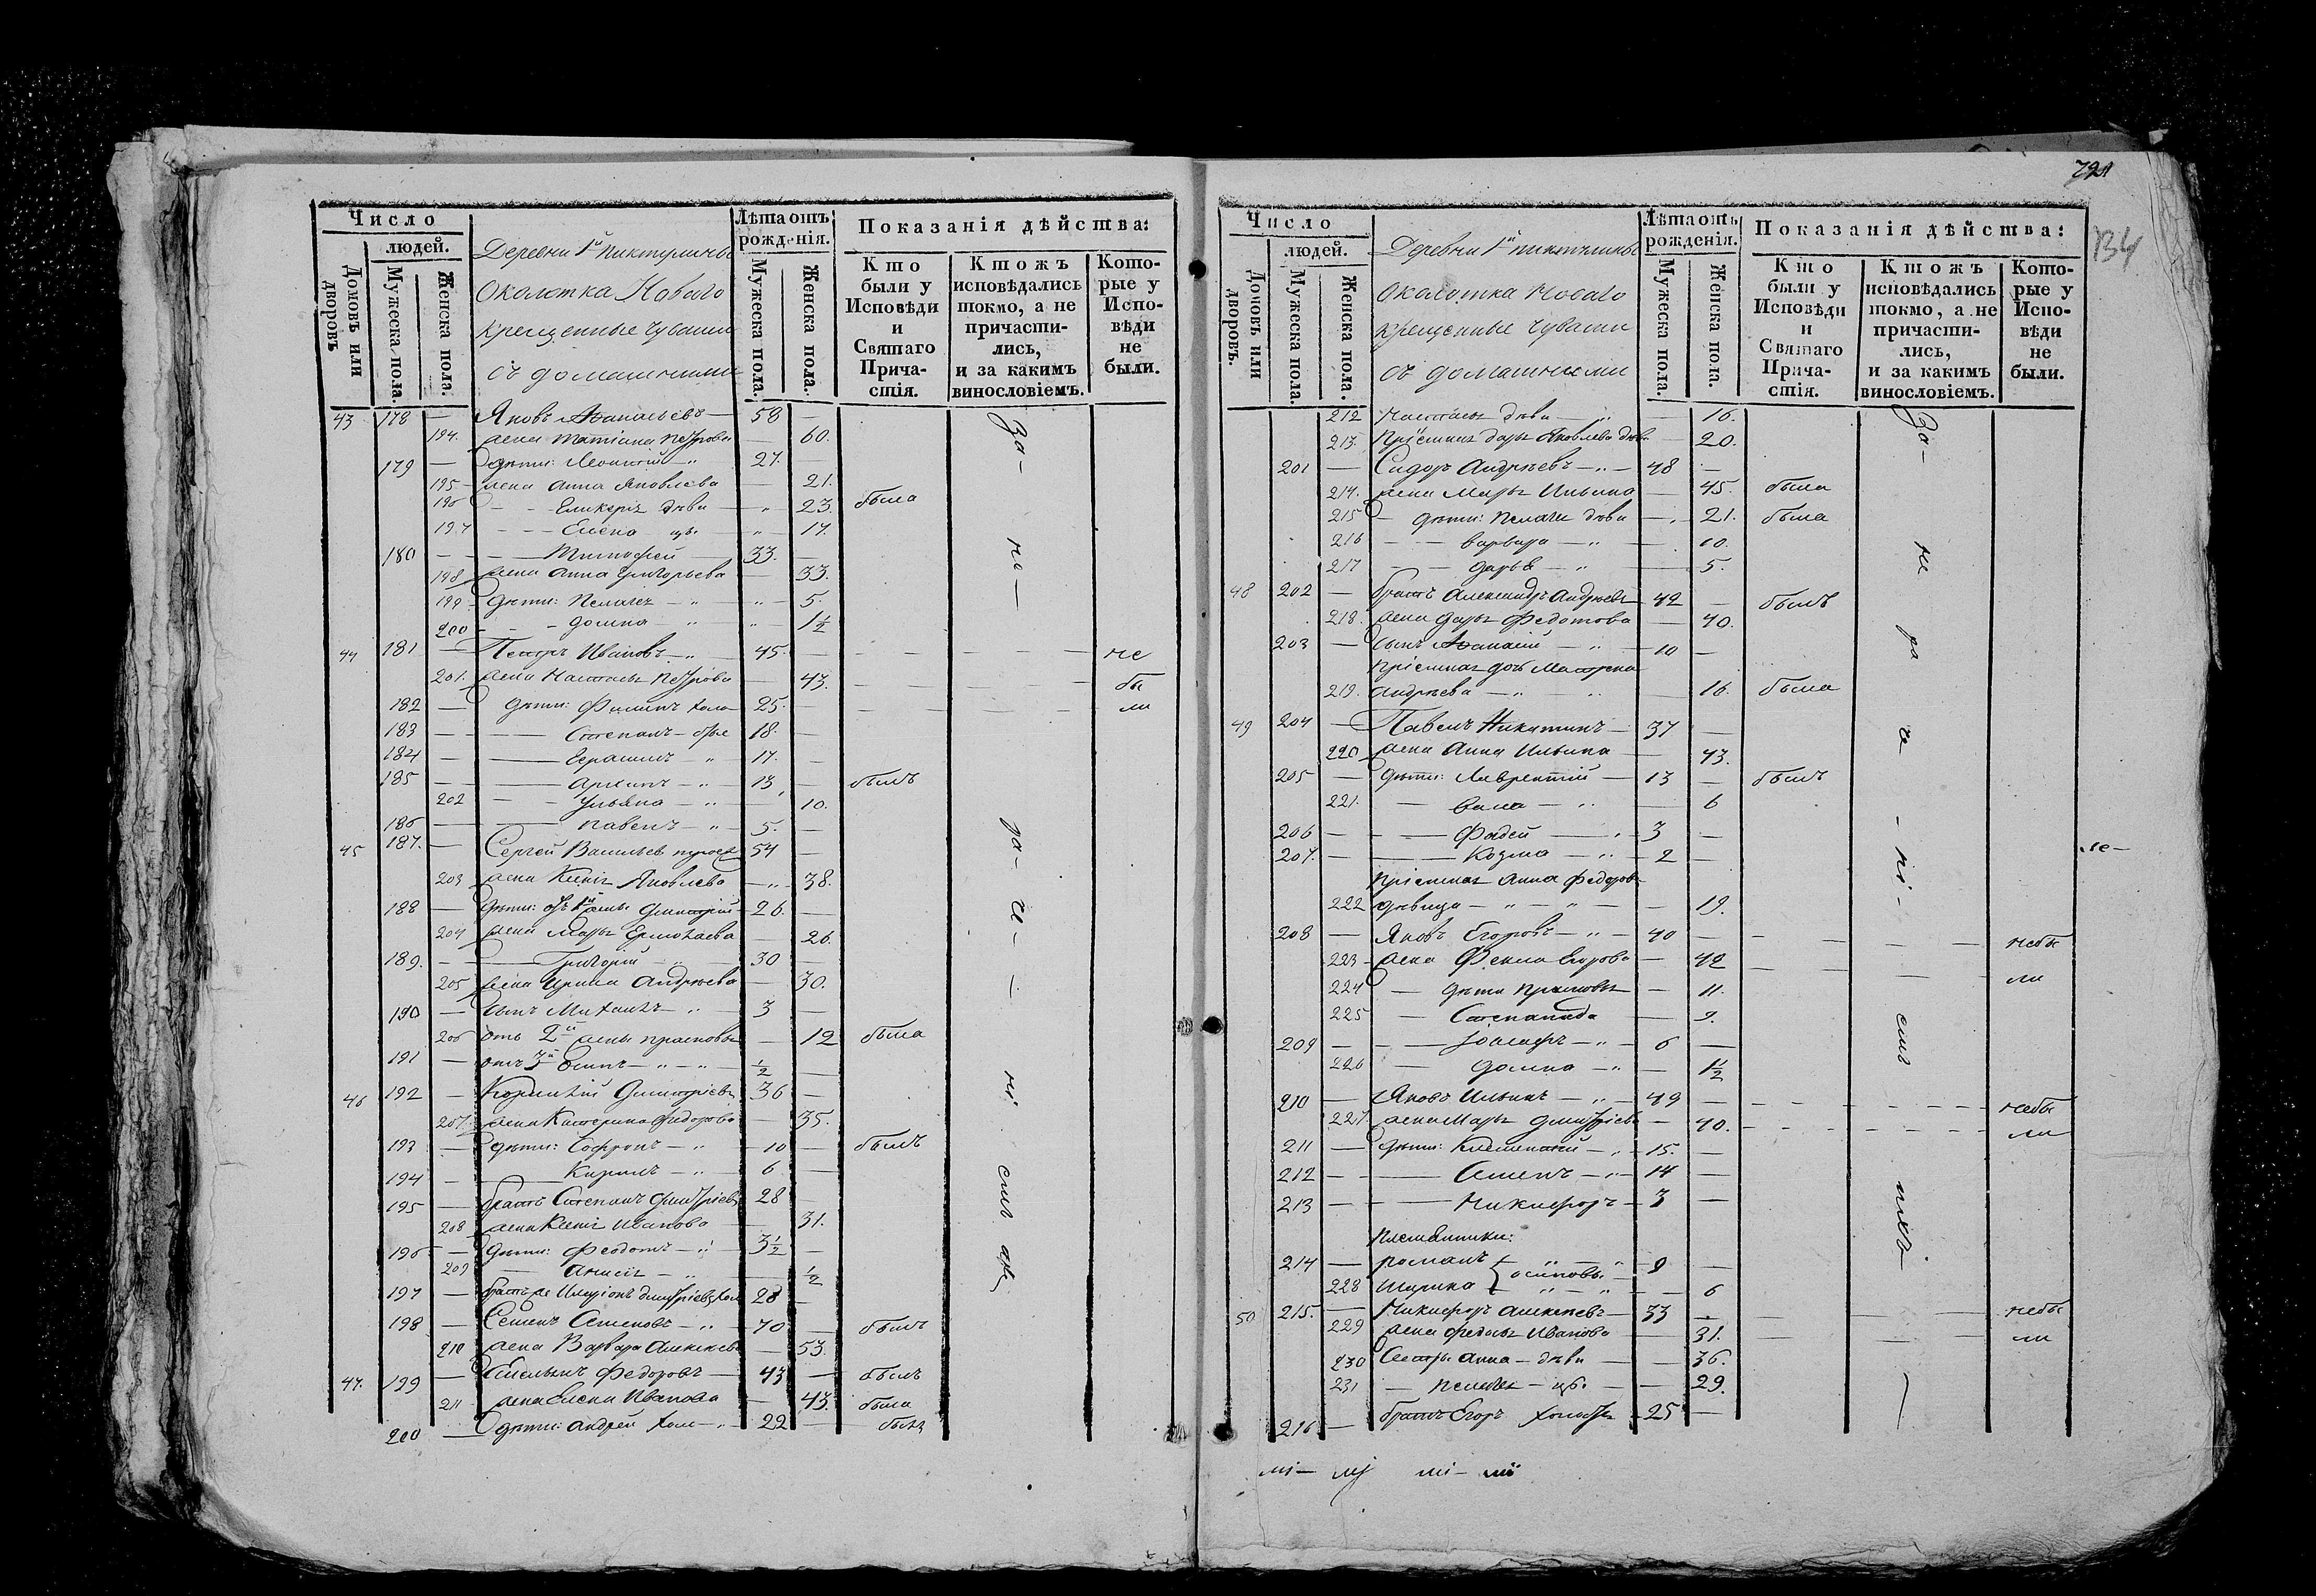 Число
людей.
Домовъ или дворовъ
Мужеска пола.
Женска пола.
Деревни 1й
Околотка Новаго
крещенные чуваши
съ домашними
Лѣта отъ рожденія.
Мужеска пола.
Женска пола.
Показанія дѣйства:
Кто были у Исповѣди и Святаго Причастія.
Ктожъ исповѣдались токмо, а не причастились, и за какимъ винословіемъ.
Которые у Исповѣди не были.
43 178 — Яковъ Афанасьевъ — 58 —
194. жена Татіана Петрова — 60.
179 — дѣти: Леонтій — 27.
195 — жена Анна Яковлева — 21.
196 — Гликерія дѣви — 23. была
197 — Елена — 17.
180 — Тимофей — 33. —
198 жена Анна Григорьева — 33.
199 — дѣти: Пелагея — 5.
200 — Домна — 1½
44 181 — Петръ Ивановъ — 45. — не
201. жена Настасья Петрова — 43. — бы
182 — дѣти: Филипъ холо 25. — ли
183 — Степанъ — 18. —
184 — Герасимъ — 17. —
185 — Архипъ — 13 — былъ
202 — Ульяна — 10.
186 — Павелъ — 5. —
45 187. — Сергей Васильев 54 —
203 жена Ксенія Яковлева — 38.
188 — дѣти: отъ 1й жены Димитрій 26. —
204 жена Марья Ермолаева — 26.
189. — Григорій — 30 —
205 жена Ирина Андреева — 30.
190 — сынъ Михаилъ — 3 —
206 отъ 2й жены Прасковья — 12 была
191 — отъ 3й Осипъ — ½ —
46 192 — Корнилій Димитріевъ 36 —
207. жена Катерина Федорова — 35.
193 — дѣти: Софронъ — 10 — былъ
194 — Кирилъ — 6 —
195 — братъ Степанъ Димитріевъ 28 —
208 жена Ксенія Иванова — 31.
196 — дѣти: Феодотъ — 3½ —
209 — Анисія — ½
197 — Иларіонъ Димитріевъ хол 28 —
198 — Семенъ Семеновъ — 70 — былъ
210 жена Варвара Алексеева — 53.
47. 199 — Емельянъ Федоровъ — 43 — былъ
211 жена Елена Иванова — 43. была
200 — дѣти: Андрей хол — 22 — былъ
За-
721
134
Число
людей.
Домовъ или дворовъ.
Мужеска пола.
Женска пола.
Деревни 1й
Околотка Новаго
крещенные чуваши
съ домашними
Лѣта отъ рожденія.
Мужеска пола.
Женска пола.
Показанія дѣйства:
Кто были у Исповѣди и Святаго Причастія.
Ктожъ исповѣдались токмо, а не причастились, и за какимъ винословіемъ.
Которые у Исповѣди не были.
212 Настасья дѣви — 16.
213 Пріемная Дарья Яковлева дѣви — 20.
201 — Сидоръ Андреевъ — 48 —
214. жена Марья Ильина — 45. была
215 — дѣти: Пелагея дѣви — 21. была
216 — Варвара — 10.
217 — Дарья — 5.
48 202 — братъ Александръ Андреевъ 42 — былъ
218. жена Дарья Федотова — 40.
203 — сынъ Афанасій — 10 —
Пріемная дочь Матрена
219. Андреева — 16. была
49 204 — Павелъ Никитинъ — 37 —
220 жена Анна Ильина — 43.
205 — дѣти: Лаврентій — 13 — былъ
221. — 6
206 — Фадей — 3 —
207. — Козма — 2 —
Пріемная Анна Федоров
222 дѣвица — 19.
208 — Яковъ Егоровъ — 40 — небы
223 — жена Фекла Егорова — 42 — ли
224 — дѣти Прасковья — 11.
225 — Степанида — 9.
209 — Іоасафъ — 6 —
226 — Домна — 1½
210 — Яковъ Ильинъ — 49 — небы
227 жена Марья Димитріева — 40. — ли
211 — дѣти: Климентій — 15. —
212 — Семенъ — 14 —
213 — Никифоръ — 3 —
Племянники:
214 — Романъ — 9 —
228 Марина Осиповы — 6
50 215. — Никифоръ Алексеевъ — 33 — небы
229 жена Федосья Иванова — 31. — ли
230 Сестры Анна — дѣви — 36.
231 — Пелагея — 29.
216 — братъ Егоръ — 25 —
За-